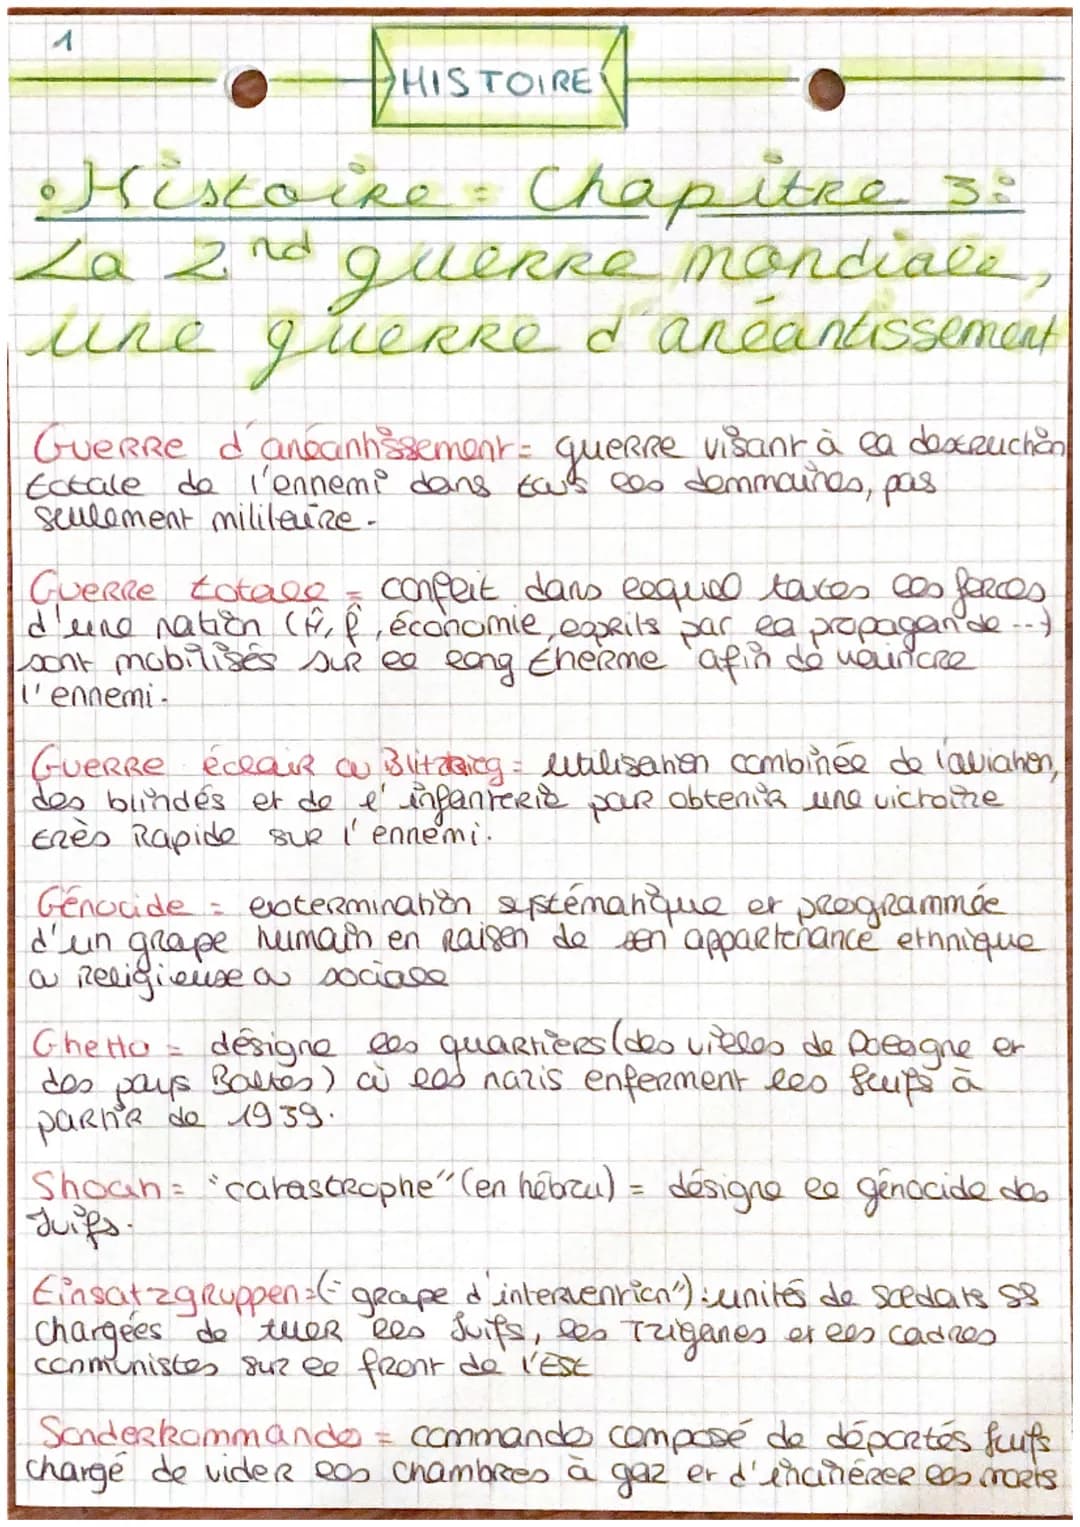 1
HISTOIRE
• Histoire = Chapitre 3:
La 2nd guerre mondiale,
une guerre d'anéantissement
Guerre d'anéantissement = guerre visant à la destruction
totale de l'ennemi dans tous les dommaines, pas
seulement militaire.
Guerre totale = conflit dans lequel toutes les forces
d'une nation (H, F, économie, esprits par la propagande...)
sont mobilisés sur le long therme afin de vaincre
l'ennemi.
Guerre éclair ou = utilisation combinée de l'aviation,
des blindés et de l'infanterie pour obtenir une victoire
très rapide sur l'ennemi.
Génocide = extermination systématique et programmée
d'un groupe humain en raison de son appartenance ethnique
ou religieuse ou sociale
Ghetto = désigne les quartiers (des villes de Pologne et
des pays Baltes) où les nazis enferment les juifs à
partir de 1939.
Shoah = "catastrophe" (en hébreu) = désigne le génocide des
Juifs.
Einsatzgruppen = (= groupe d'intervention") : unités de soldats SS
chargées de tuer les Juifs, les Tziganes et les cadres
communistes sur le front de l'Est
Sonderkommandos = commandos composé de déportés juifs
chargé de vider les chambres à gaz et d'incinérer les morts